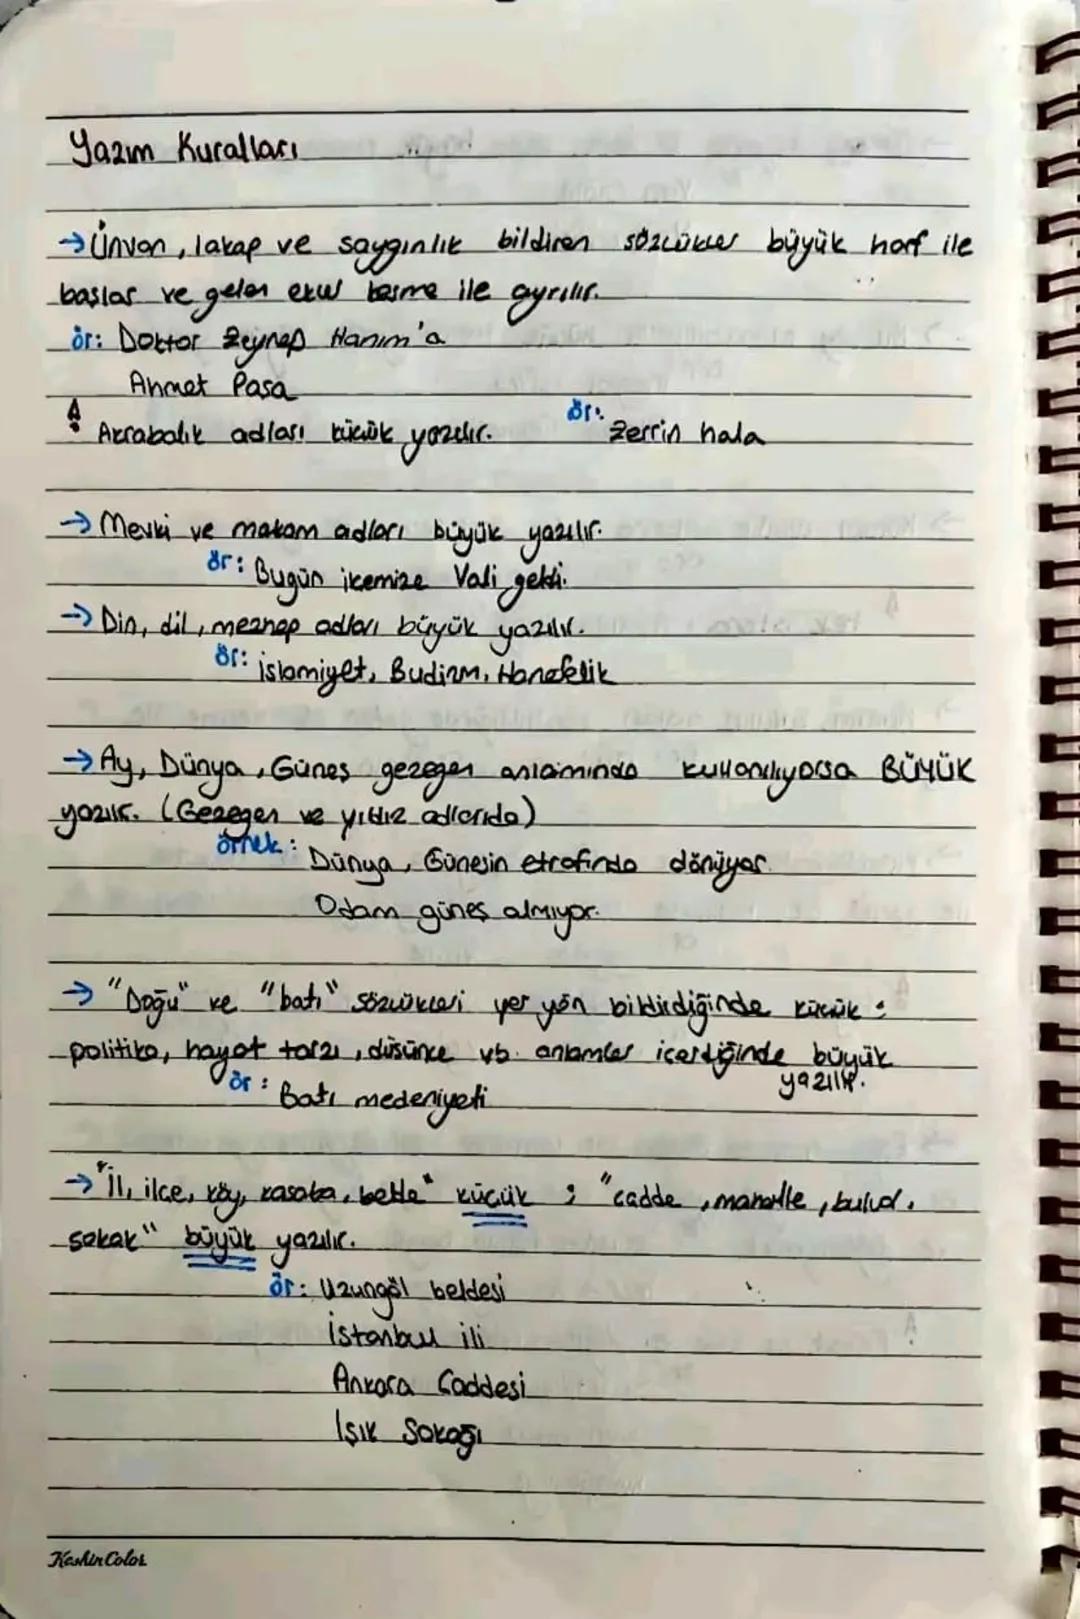 Yazım Kuralları
→ Ünvan, lakap ve saygınlık bildiren sözcükler büyük harf ile
başlar ve gelen ekler kesme ile ayrılır.
ör: Doktor Zeynep Hanım'a
Ahmet Paşa
! Akrabalık adları küçük yazılır. ör: Zerrin hala
→ Mevki ve makam adları büyük yazılır.
ör: Bugün ilçemize Vali geldi.
→ Din, dil, mezhep adları büyük yazılır.
ör: islamiyet, Budizm, Hanefilik
→ Ay, Dünya, Güneş gezegen anlamında kullanılıyorsa BÜYÜK
yazılır. (Gezegen ve yıldız adlarıda)
örnek: Dünya, Güneşin etrafında dönüyor.
Odam güneş almıyor.
→ "Doğu" ve "batı" sözcükleri yer yön bildirdiğinde küçük ;
politika, hayat tarzı, düşünce vb. anlamlar içerdiğinde büyük
yazılır.
ör: Batı medeniyeti
→ "İl, ilçe, köy, kasaba, belde" küçük ; "cadde, mahalle, bulvar,
sokak" büyük yazılır.
ör: Uzungöl beldesi
İstanbul ili
Ankara Caddesi
Işık Sokağı
KeskinColor